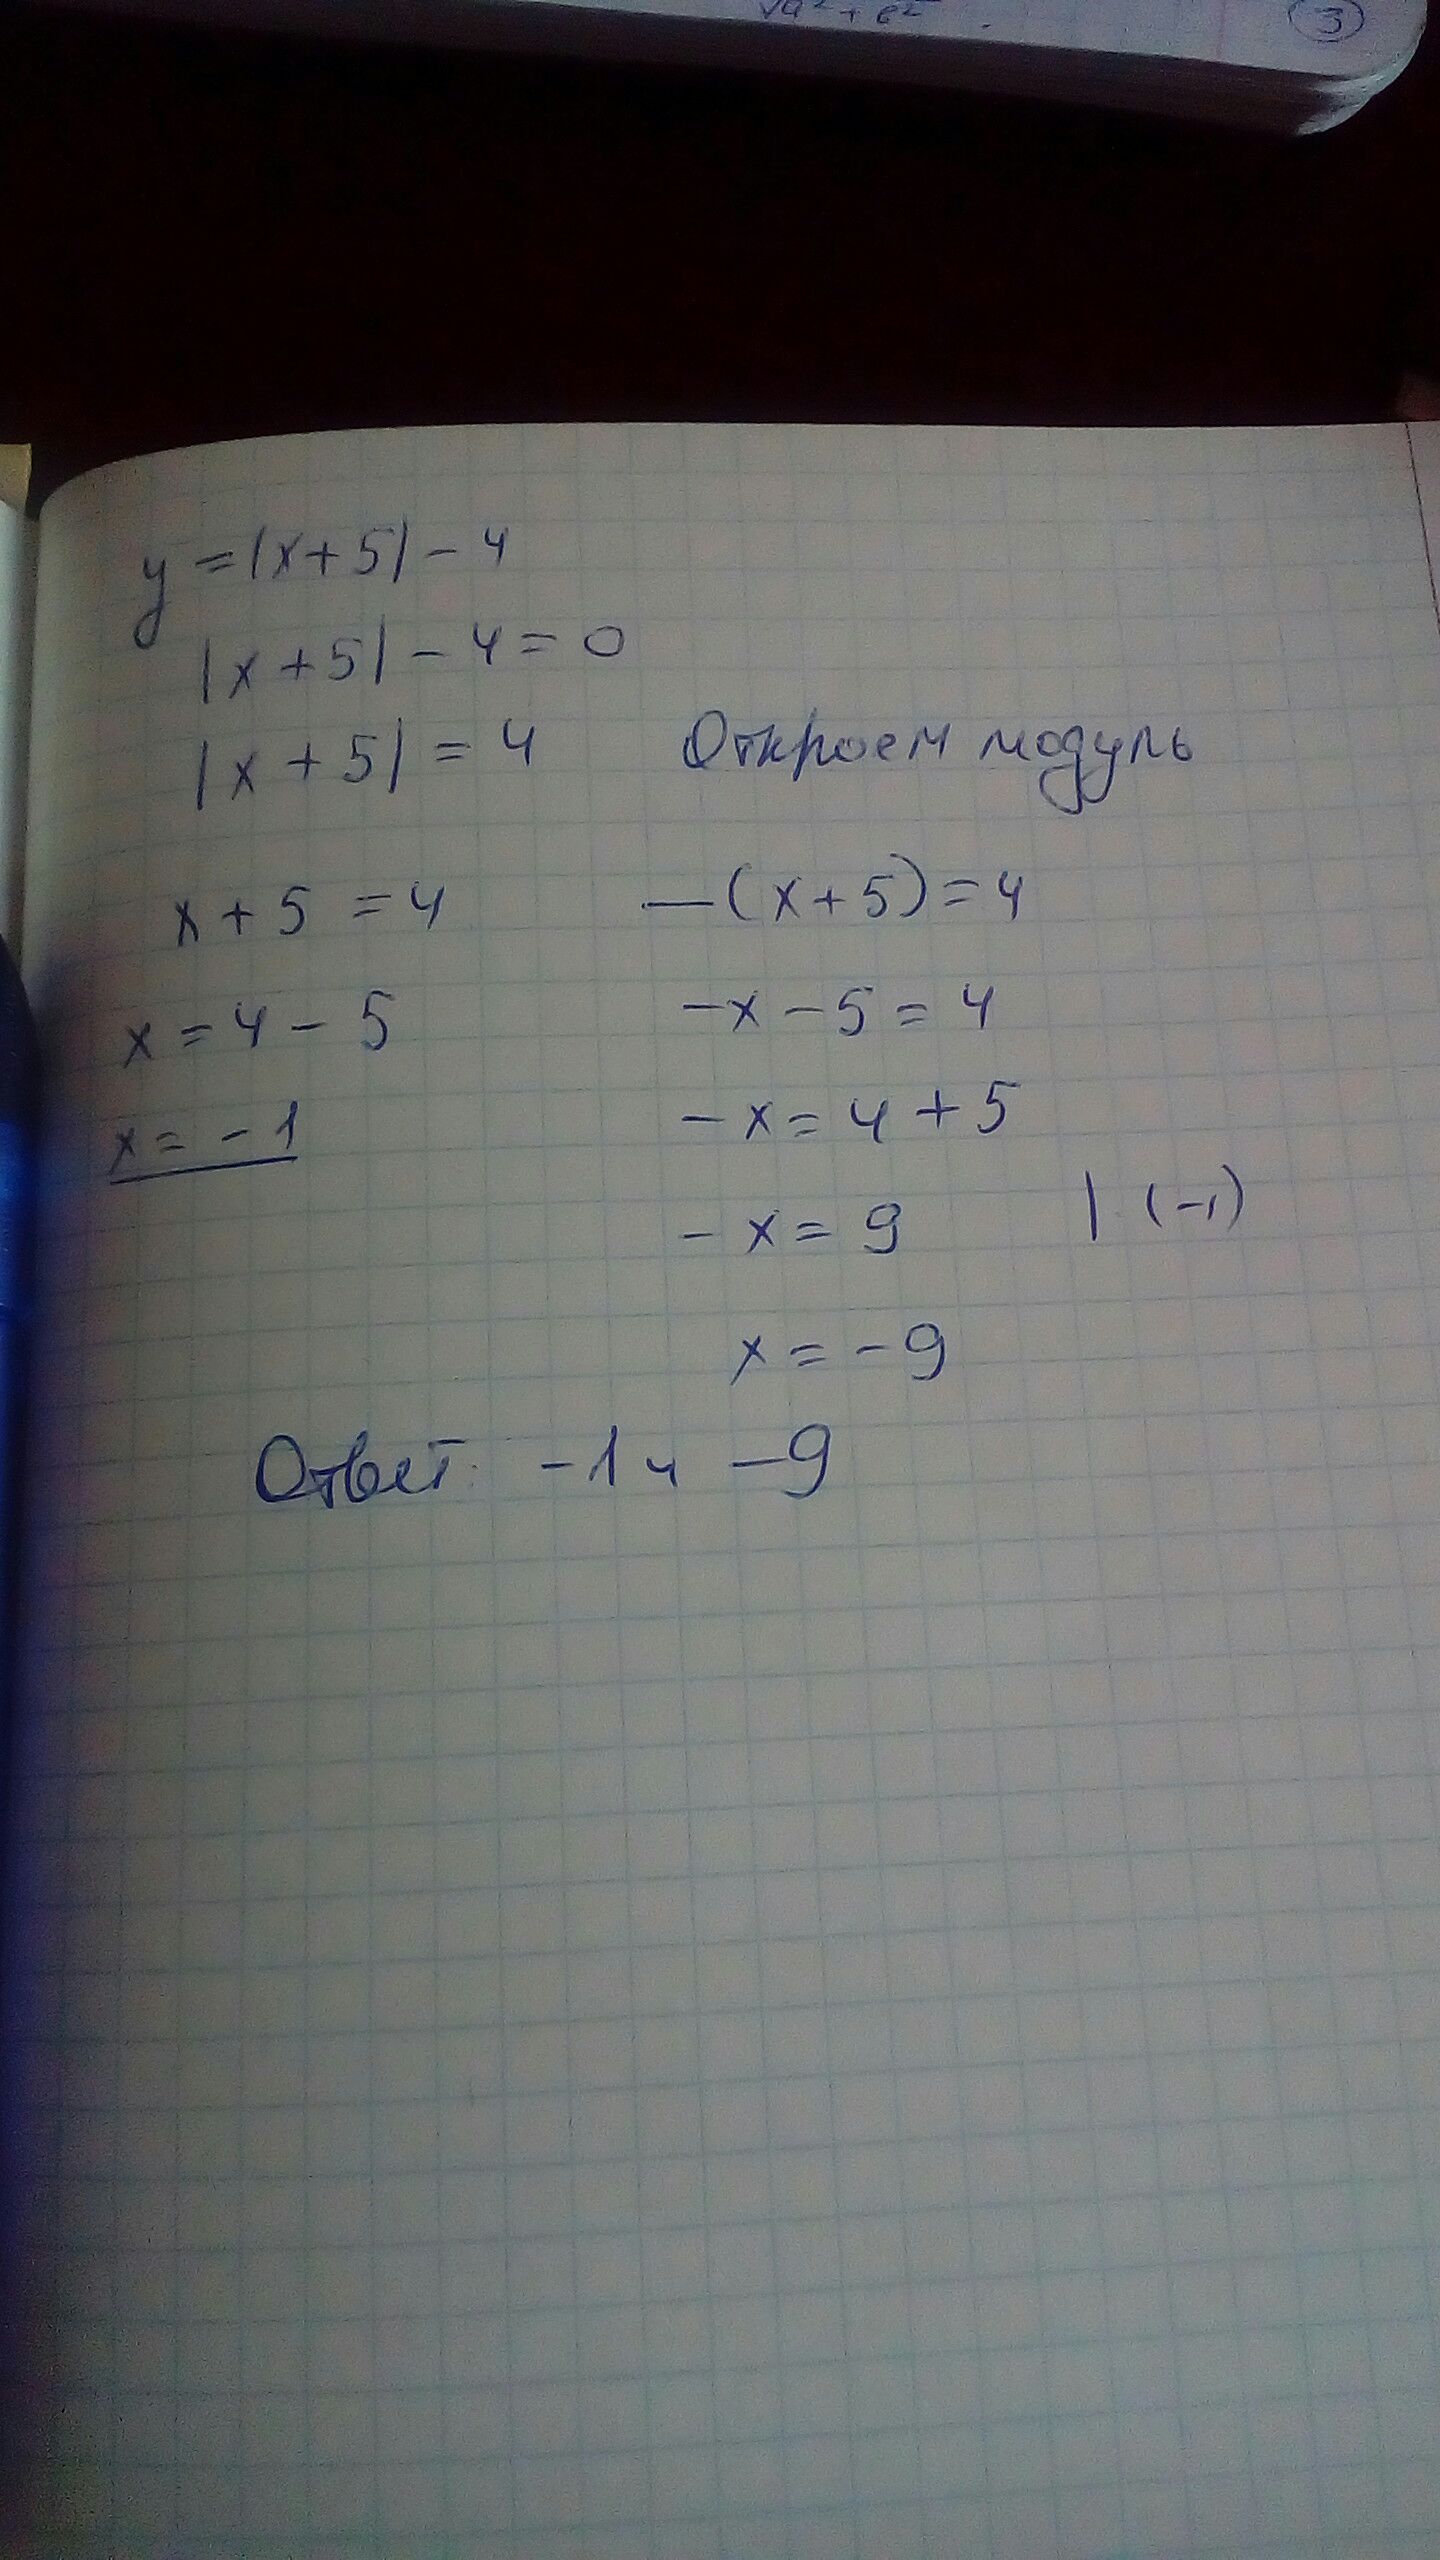 √a² + b²
3
y = |x+5| - 4
|x+5| - 4 = 0
|x+5| = 4 Откроем модуль
x + 5 = 4 -(x+5) = 4
x = 4 - 5 -x - 5 = 4
x = -1 -x = 4 + 5
-x = 9 | (-1)
x = -9
Ответ: -1 и -9